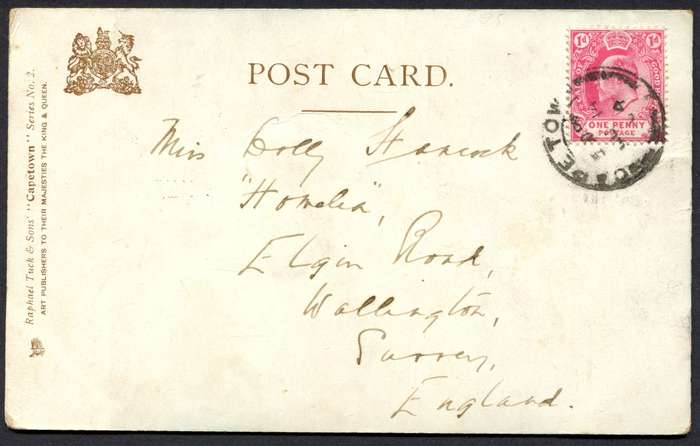 POST CARD.
Raphael Tuck & Sons' "Capetown" Series No. 2.
ART PUBLISHERS TO THEIR MAJESTIES THE KING & QUEEN.
1d 1d
GOOD HOPE
ONE PENNY
POSTAGE
CAPE TOWN
Miss Dolly Hancock
"Homelea",
Elgin Road,
Wallington,
Surrey,
England.